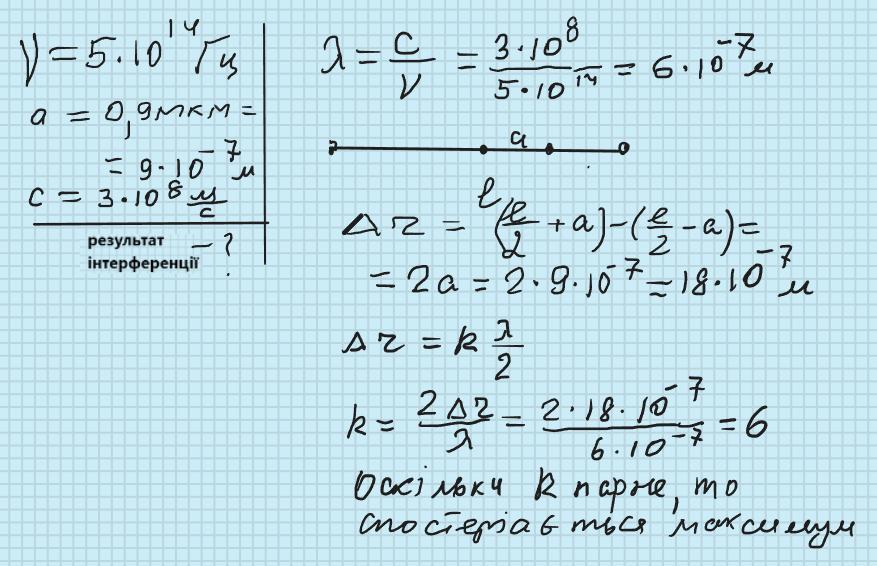 ν = 5·10¹⁴ Гц
a = 0,9 мкм =
= 9·10⁻⁷ м
c = 3·10⁸ м/с
результат
інтерференції – ?
λ = c/ν = 3·10⁸/5·10¹⁴ = 6·10⁻⁷ м
a
l
Δr = (l/2 + a) – (l/2 – a) =
= 2a = 2·9·10⁻⁷ = 18·10⁻⁷ м
Δr = k λ/2
k = 2Δr/λ = 2·18·10⁻⁷/6·10⁻⁷ = 6
Оскільки k парне, то
спостерігається максимум